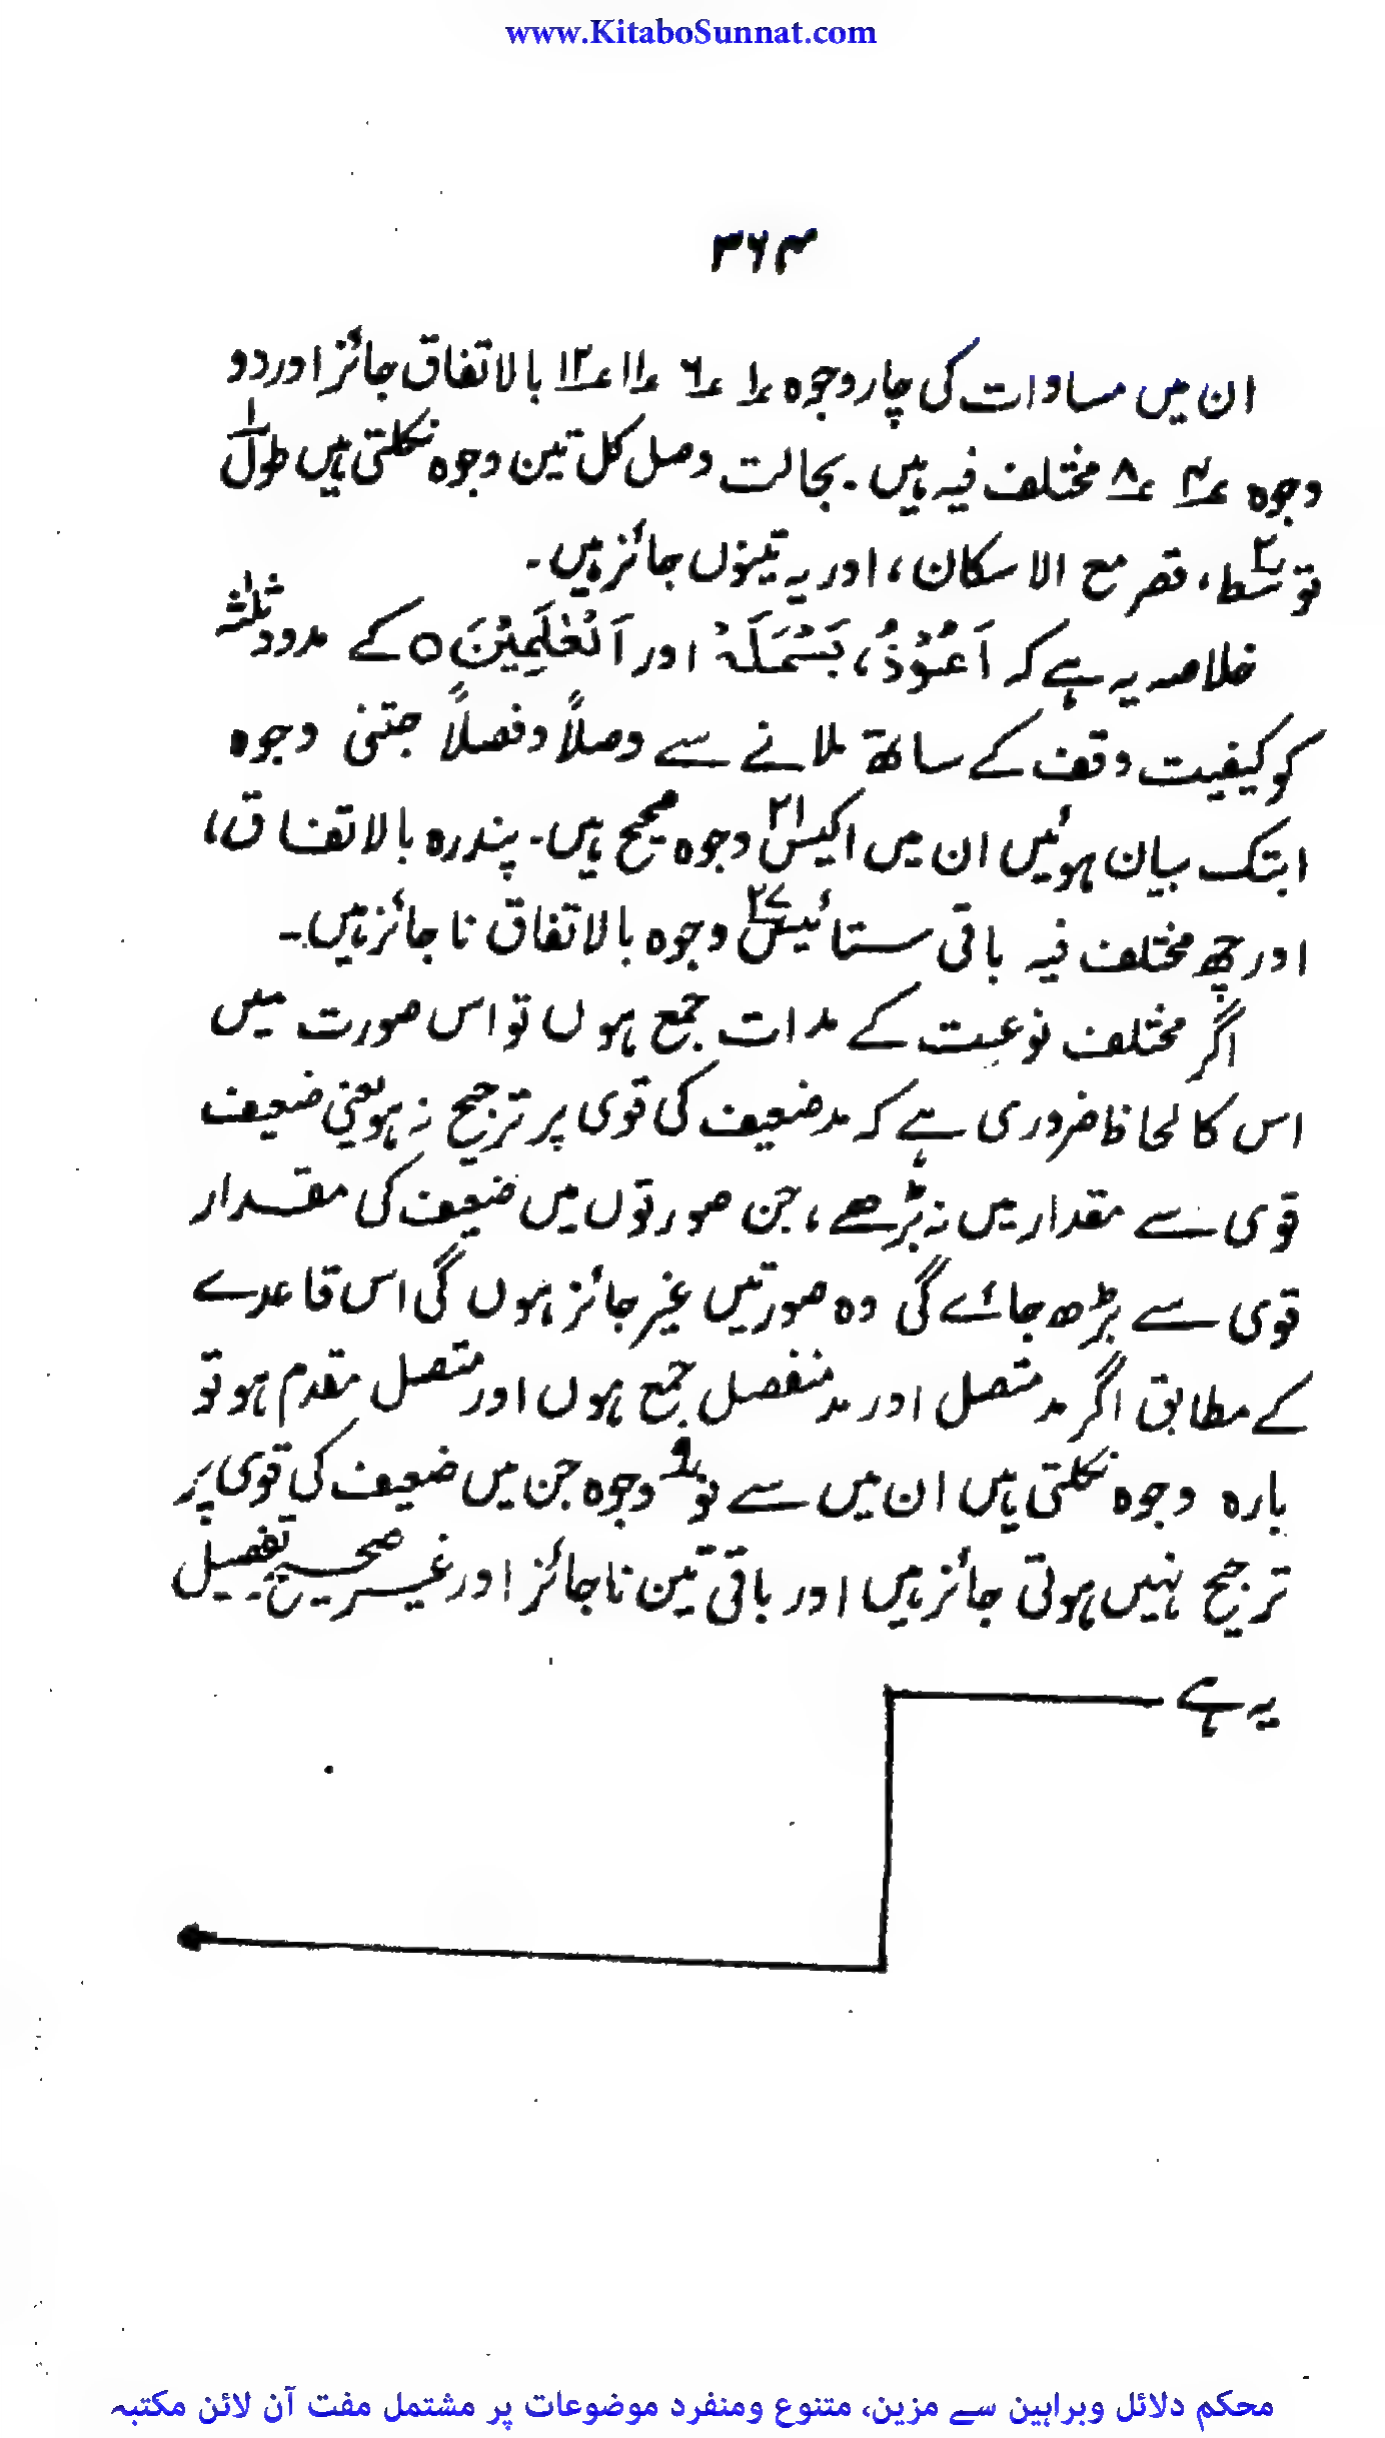 www.KitaboSunnat.com
۳۶۴
ان میں مساوات کی چار وجوہ ؏۱ ؏۶ ؏۱۱ ؏۱۲ بالاتفاق جائز اور دو
وجوہ ؏۴ ؏۸ مختلف فیہ ہیں۔ بحالت وصل کل تین وجوہ نکلتی ہیں طول۱
توسط۲، قصر مع الاسکان، اور یہ تینوں جائز ہیں۔
خلاصہ یہ ہے کہ اَعُوْذُ، بَسْمَلَہْ اور اَلْعٰلَمِیْنَ ○ کے مدود ثلٰثہ
کو کیفیت وقف کے ساتھ ملانے سے وصلاً وفصلاً جتنی وجوہ
ابتک بیان ہوئیں ان میں اکیس۲۱ وجوہ صحیح ہیں۔ پندرہ بالاتفاق،
اور چھ مختلف فیہ باقی ستائیس۲۷ وجوہ بالاتفاق ناجائز ہیں۔
اگر مختلف نوعیت کے مدات جمع ہوں تو اس صورت میں
اس کا لحاظ ضروری ہے کہ مد ضعیف کی قوی پر ترجیح نہ ہو یعنی ضعیف
قوی سے مقدار میں نہ بڑھے، جن صورتوں میں ضعیف کی مقدار
قوی سے بڑھ جائے گی وہ صورتیں غیر جائز ہوں گی اس قاعدے
کے مطابق اگر مد متصل اور مد منفصل جمع ہوں اور متصل مقدم ہو تو
بارہ وجوہ نکلتی ہیں ان میں سے نو۹ وجوہ جن میں ضعیف کی قوی پر
ترجیح نہیں ہوتی جائز ہیں اور باقی تین ناجائز اور غیر صحیح تفصیل
یہ ہے
محکم دلائل وبراہین سے مزین، متنوع ومنفرد موضوعات پر مشتمل مفت آن لائن مکتبہ